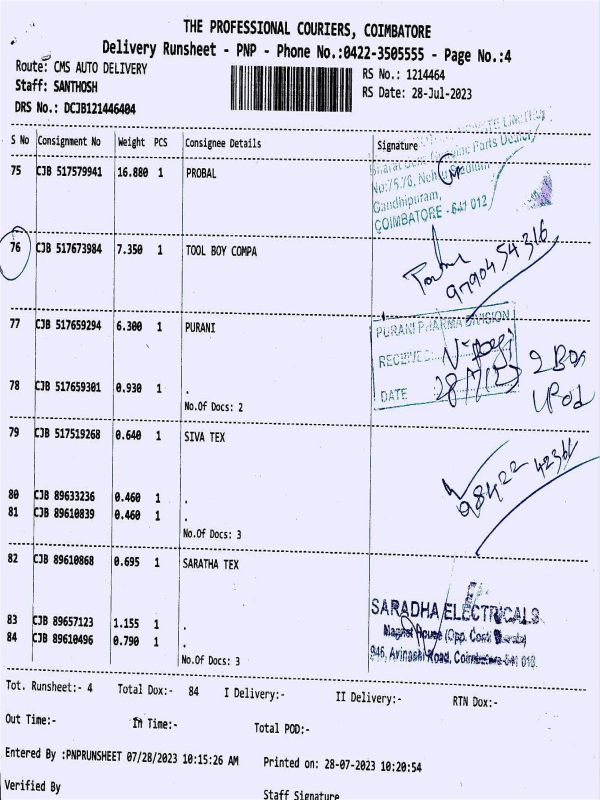 THE PROFESSIONAL COURIERS, COIMBATORE
Delivery Runsheet - PNP - Phone No.:0422-3505555 - Page No.:4
Route: CMS AUTO DELIVERY RS No.: 1214464
Staff: SANTHOSH RS Date: 28-Jul-2023
DRS No.: DCJB121446404
S No Consignment No Weight PCS Consignee Details Signature
75 CJB 517579941 16.880 1 PROBAL
Parts Dealer
No:75,76, Nehru Stadium
Gandhipuram,
COIMBATORE - 641 012
76 CJB 517673984 7.350 1 TOOL BOY COMPA
9790454316
77 CJB 517659294 6.300 1 PURANI
PURANI PHARMA DIVISION
RECEIVED
DATE 28/7/23
2 Box
1 Pod
78 CJB 517659301 0.930 1 .
No.Of Docs: 2
79 CJB 517519268 0.640 1 SIVA TEX
98422 4236
80 CJB 89633236 0.460 1 .
81 CJB 89610839 0.460 1 .
No.Of Docs: 3
82 CJB 89610868 0.695 1 SARATHA TEX
SARADHA ELECTRICALS
House (Opp.
946, Avinashi Road, Coimbatore
83 CJB 89657123 1.155 1 .
84 CJB 89610496 0.790 1 .
No.Of Docs: 3
Tot. Runsheet:- 4 Total Dox:- 84 I Delivery:- II Delivery:- RTN Dox:-
Out Time:- In Time:- Total POD:-
Entered By :PNPRUNSHEET 07/28/2023 10:15:26 AM Printed on: 28-07-2023 10:20:54
Verified By Staff Signature